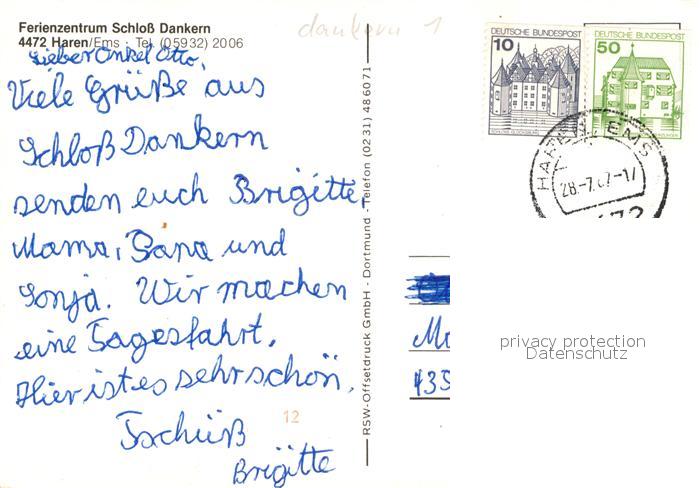 Ferienzentrum Schloß Dankern
4472 Haren/Ems · Tel. (05932) 2006
dankern 1
Lieber Onkel Otto,
Viele Grüße aus
Schloß Dankern
senden euch Brigitte,
Mama, Papa und
Sonja. Wir machen
eine Tagesfahrt.
Hier ist es sehr schön.
Tschüß
Brigitte
12
RSW-Offsetdruck GmbH - Dortmund - Telefon (02 31) 48 60 71
DEUTSCHE BUNDESPOST
10
DEUTSCHE BUNDESPOST
50
HAREN, EMS
28-7.87-17
4472
435
privacy protection
Datenschutz